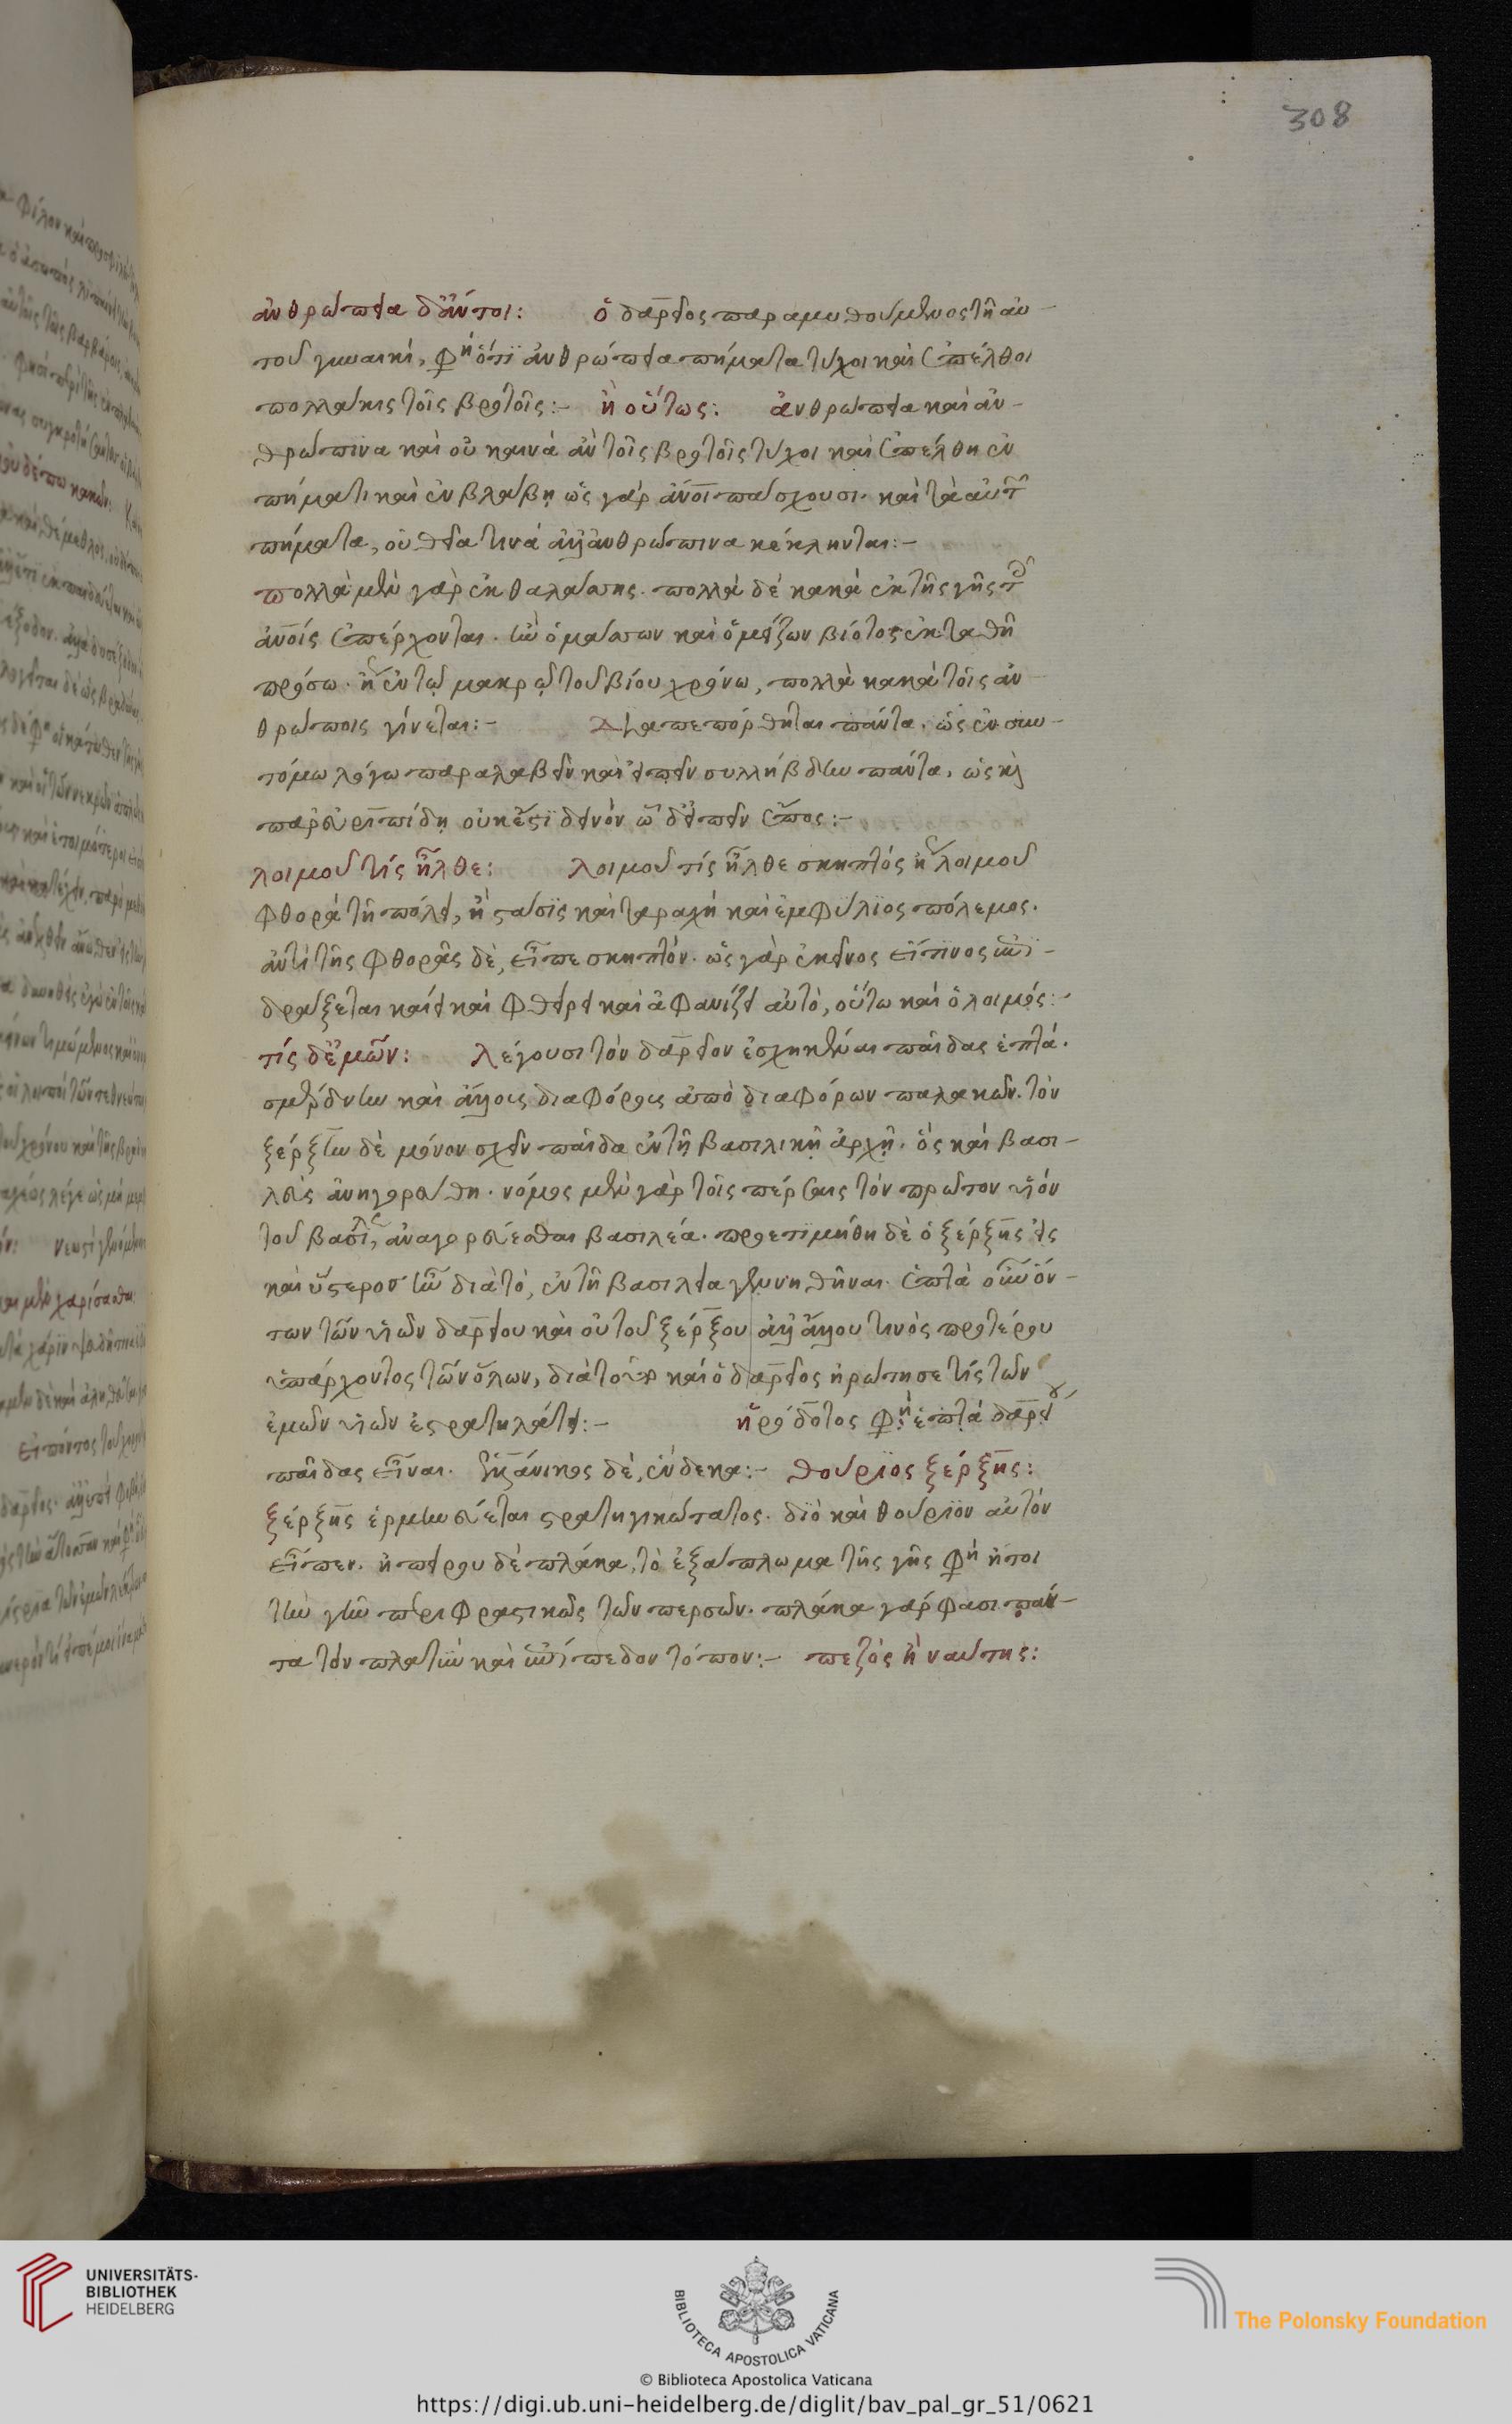 308
ἀνθρώπεια δἄν τοι: ὁ δαρεῖος παραμυθούμενος τῆ αὐ-
τοῦ γυναικί, φη ὅτι ἀνθρώπεια πήματα τύχοι καὶ ἐπέλθοι
πολλάκις τοῖς βροτοῖς:- ἢ οὕτως: ἀνθρώπεια καὶ ἀν-
θρώπινα καὶ οὐ καινὰ ἀν τοῖς βροτοῖς τύχοι καὶ ἐπέλθη ἐν
πήματι καὶ ἐν βλάβη ὡς γὰρ ἀνοι πάσχουσι. καὶ τὰ αὐτ
πήματα, οὐ θεῖα τινά ἀλλ ἀνθρώπινα κέκληνται:-
πολλὰ μὲν γὰρ ἐκ θαλάσσης. πολλά δέ κακά ἐκ τῆς γῆς τ
ἀνοίς ἐπέρχονται. ἢν ὁ μάσσων καὶ ὁ μείζων βίοτος ἐκταθῆ
πρόσω. ἤγουν ἐν τῷ μακρῷ τοῦ βίου χρόνω, πολλὰ κακὰ τοῖς ἀν
θρώποις γίνεται:- Διαπεπόρθηται πάντα, ὡς ἐν συν-
τόμω λόγω παραλαβεῖν καὶ εἰπεῖν συλλήβδην πάντα, ὡς καὶ
παρ εὐριπίδη οὐκ ἔστι δεινόν ὧδ εἰπεῖν ἔπος:-
λοιμοῦ τίς ἦλθε: λοιμοῦ τίς ἦλθε σκηπτός ἤγουν λοιμοῦ
φθορά τῆ πόλει, ἢ στάσις καὶ ταραχή καὶ ἐμφύλιος πόλεμος.
ἀντί τῆς φθορᾶς δὲ, εἶπε σκηπτόν. ὡς γὰρ ἐκεῖνος εἴ τινος ἐπι-
δράξεται καίει καὶ φθείρει καὶ ἀφανίζει αὐτὸ, οὕτω καὶ ὁ λοιμός:-
τίς δ ἐμῶν: λέγουσι τὸν δαρεῖον ἐσχηκέναι παῖδας ἑπτά.
σμέρδην καὶ ἄλλους διαφόρους ἀπὸ διαφόρων παλακῶν. τόν
ξέρξην δὲ μόνον σχεῖν παῖδα ἐν τῆ βασιλικῇ ἀρχῇ. ὅς καὶ βασι-
λεὺς ἀνηγορεύθη. νόμος μὲν γὰρ τοῖς πέρσαις τόν πρῶτον υἱόν
τοῦ βασιλέως ἀναγορεύεσθαι βασιλέα. προετιμήθη δὲ ὁ ξέρξης εἰς
καὶ ὕστερος ἦν διὰ τὸ, ἐν τῆ βασιλεία γεννηθῆναι. ἑπτὰ οὖν ὄν-
των τῶν υἱῶν δαρείου καὶ οὐ τοῦ ξέρξου ἀλλ ἄλλου τινὸς προτέρου
ὑπάρχοντος τῶν ὅλων, διὰ τοῦτο καὶ ὁ δαρεῖος ἠρώτησε τίς τῶν
ἐμῶν υἱῶν ἐστρατηλάτει:- ἡρόδοτος φη ἑπτά δαρείου
παῖδας εἶναι. ἑλλάνικος δέ, ἕνδεκα:- θούριος ξέρξης:
ξέρξης ἑρμηνεύεται στρατηγικώτατος. διὸ καὶ θούριον αὐτόν
εἶπεν. ἠπείρου δὲ πλάκα, τὸ ἐξάπλωμα τῆς γῆς φη ἤτοι
τὴν γῆν περιφραστικῶς τῶν περσῶν. πλάκα γάρ φασι πάν-
τα τὸν πλατὺν καὶ ἐπίπεδον τόπον:- πεζὸς ἢ ναύτης:
UNIVERSITÄTS-
BIBLIOTHEK
HEIDELBERG
BIBLIOTECA APOSTOLICA VATICANA
The Polonsky Foundation
© Biblioteca Apostolica Vaticana
https://digi.ub.uni-heidelberg.de/diglit/bav_pal_gr_51/0621